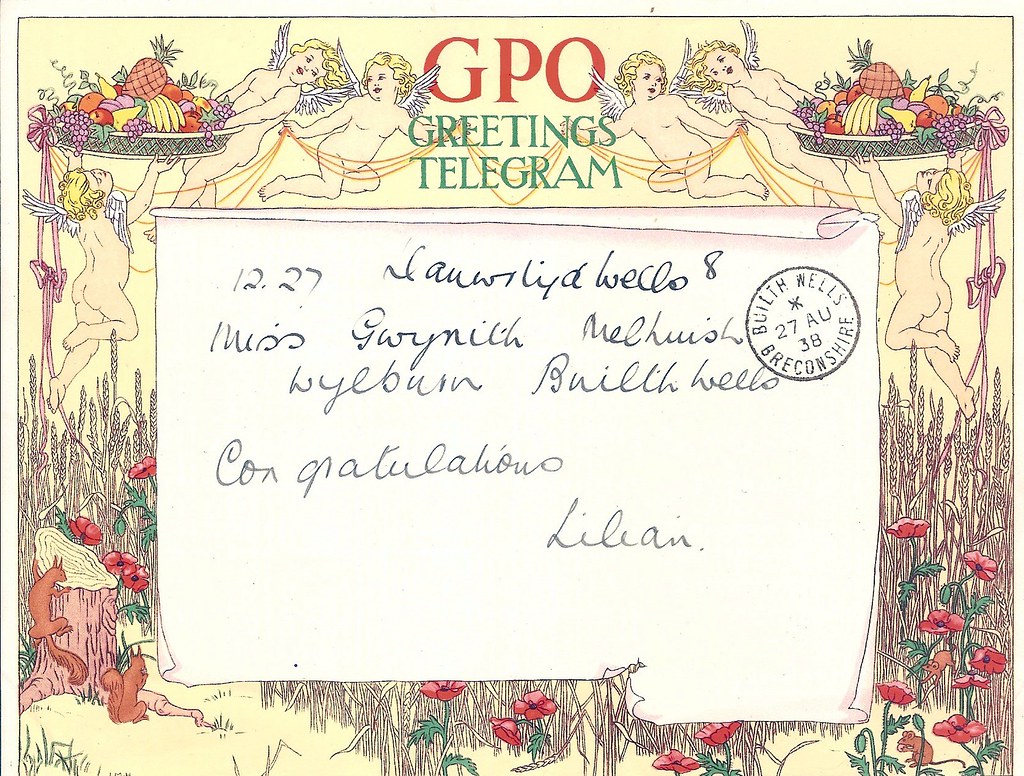 GPO
GREETINGS
TELEGRAM
12.27 Llanwrtyd Wells 8
Miss Gwynith Melhuish
Wylburn Builth Wells
Congratulations
Lilian.
BUILTH WELLS
*
27 AU
38
BRECONSHIRE